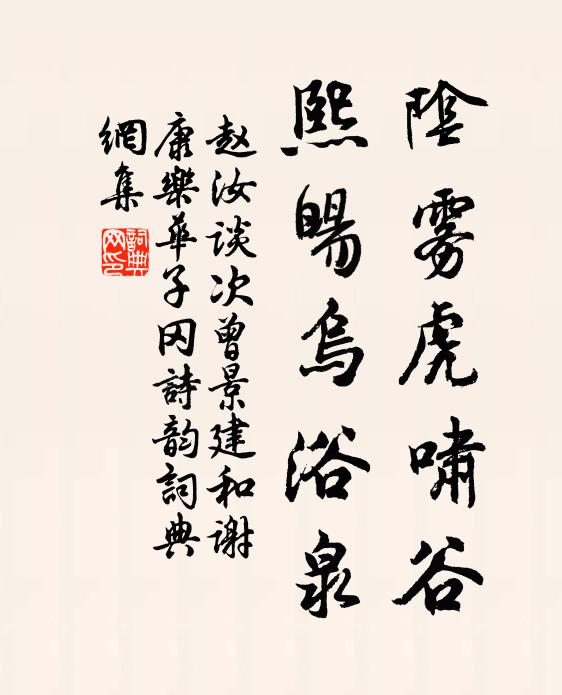 陰雾虎啸谷
熙暘烏浴泉
赵汝谈次曾景建和谢
康樂華子岡詩韵詞典
網集
詞典網印